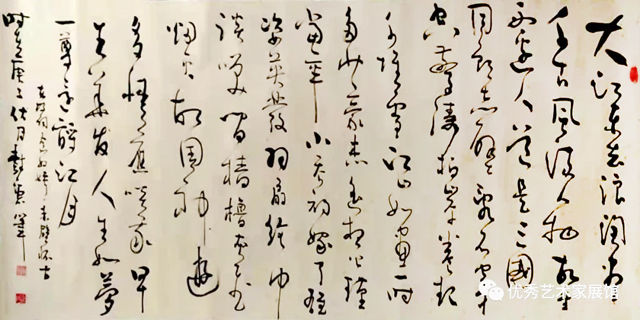 大江東去浪淘盡
千古風流人物故壘
西邊人道是三國
周郎赤壁亂石穿
空驚濤拍岸卷起
千堆雪江山如畫一時
多少豪杰遙想公瑾
當年小喬初嫁了雄
姿英發羽扇綸巾
談笑間檣櫓灰飛
煙滅故國神遊
多情應笑我早
生華發人生如夢
一尊還酹江月
念奴嬌赤壁懷古
時在庚子伏月
优秀艺术家展馆